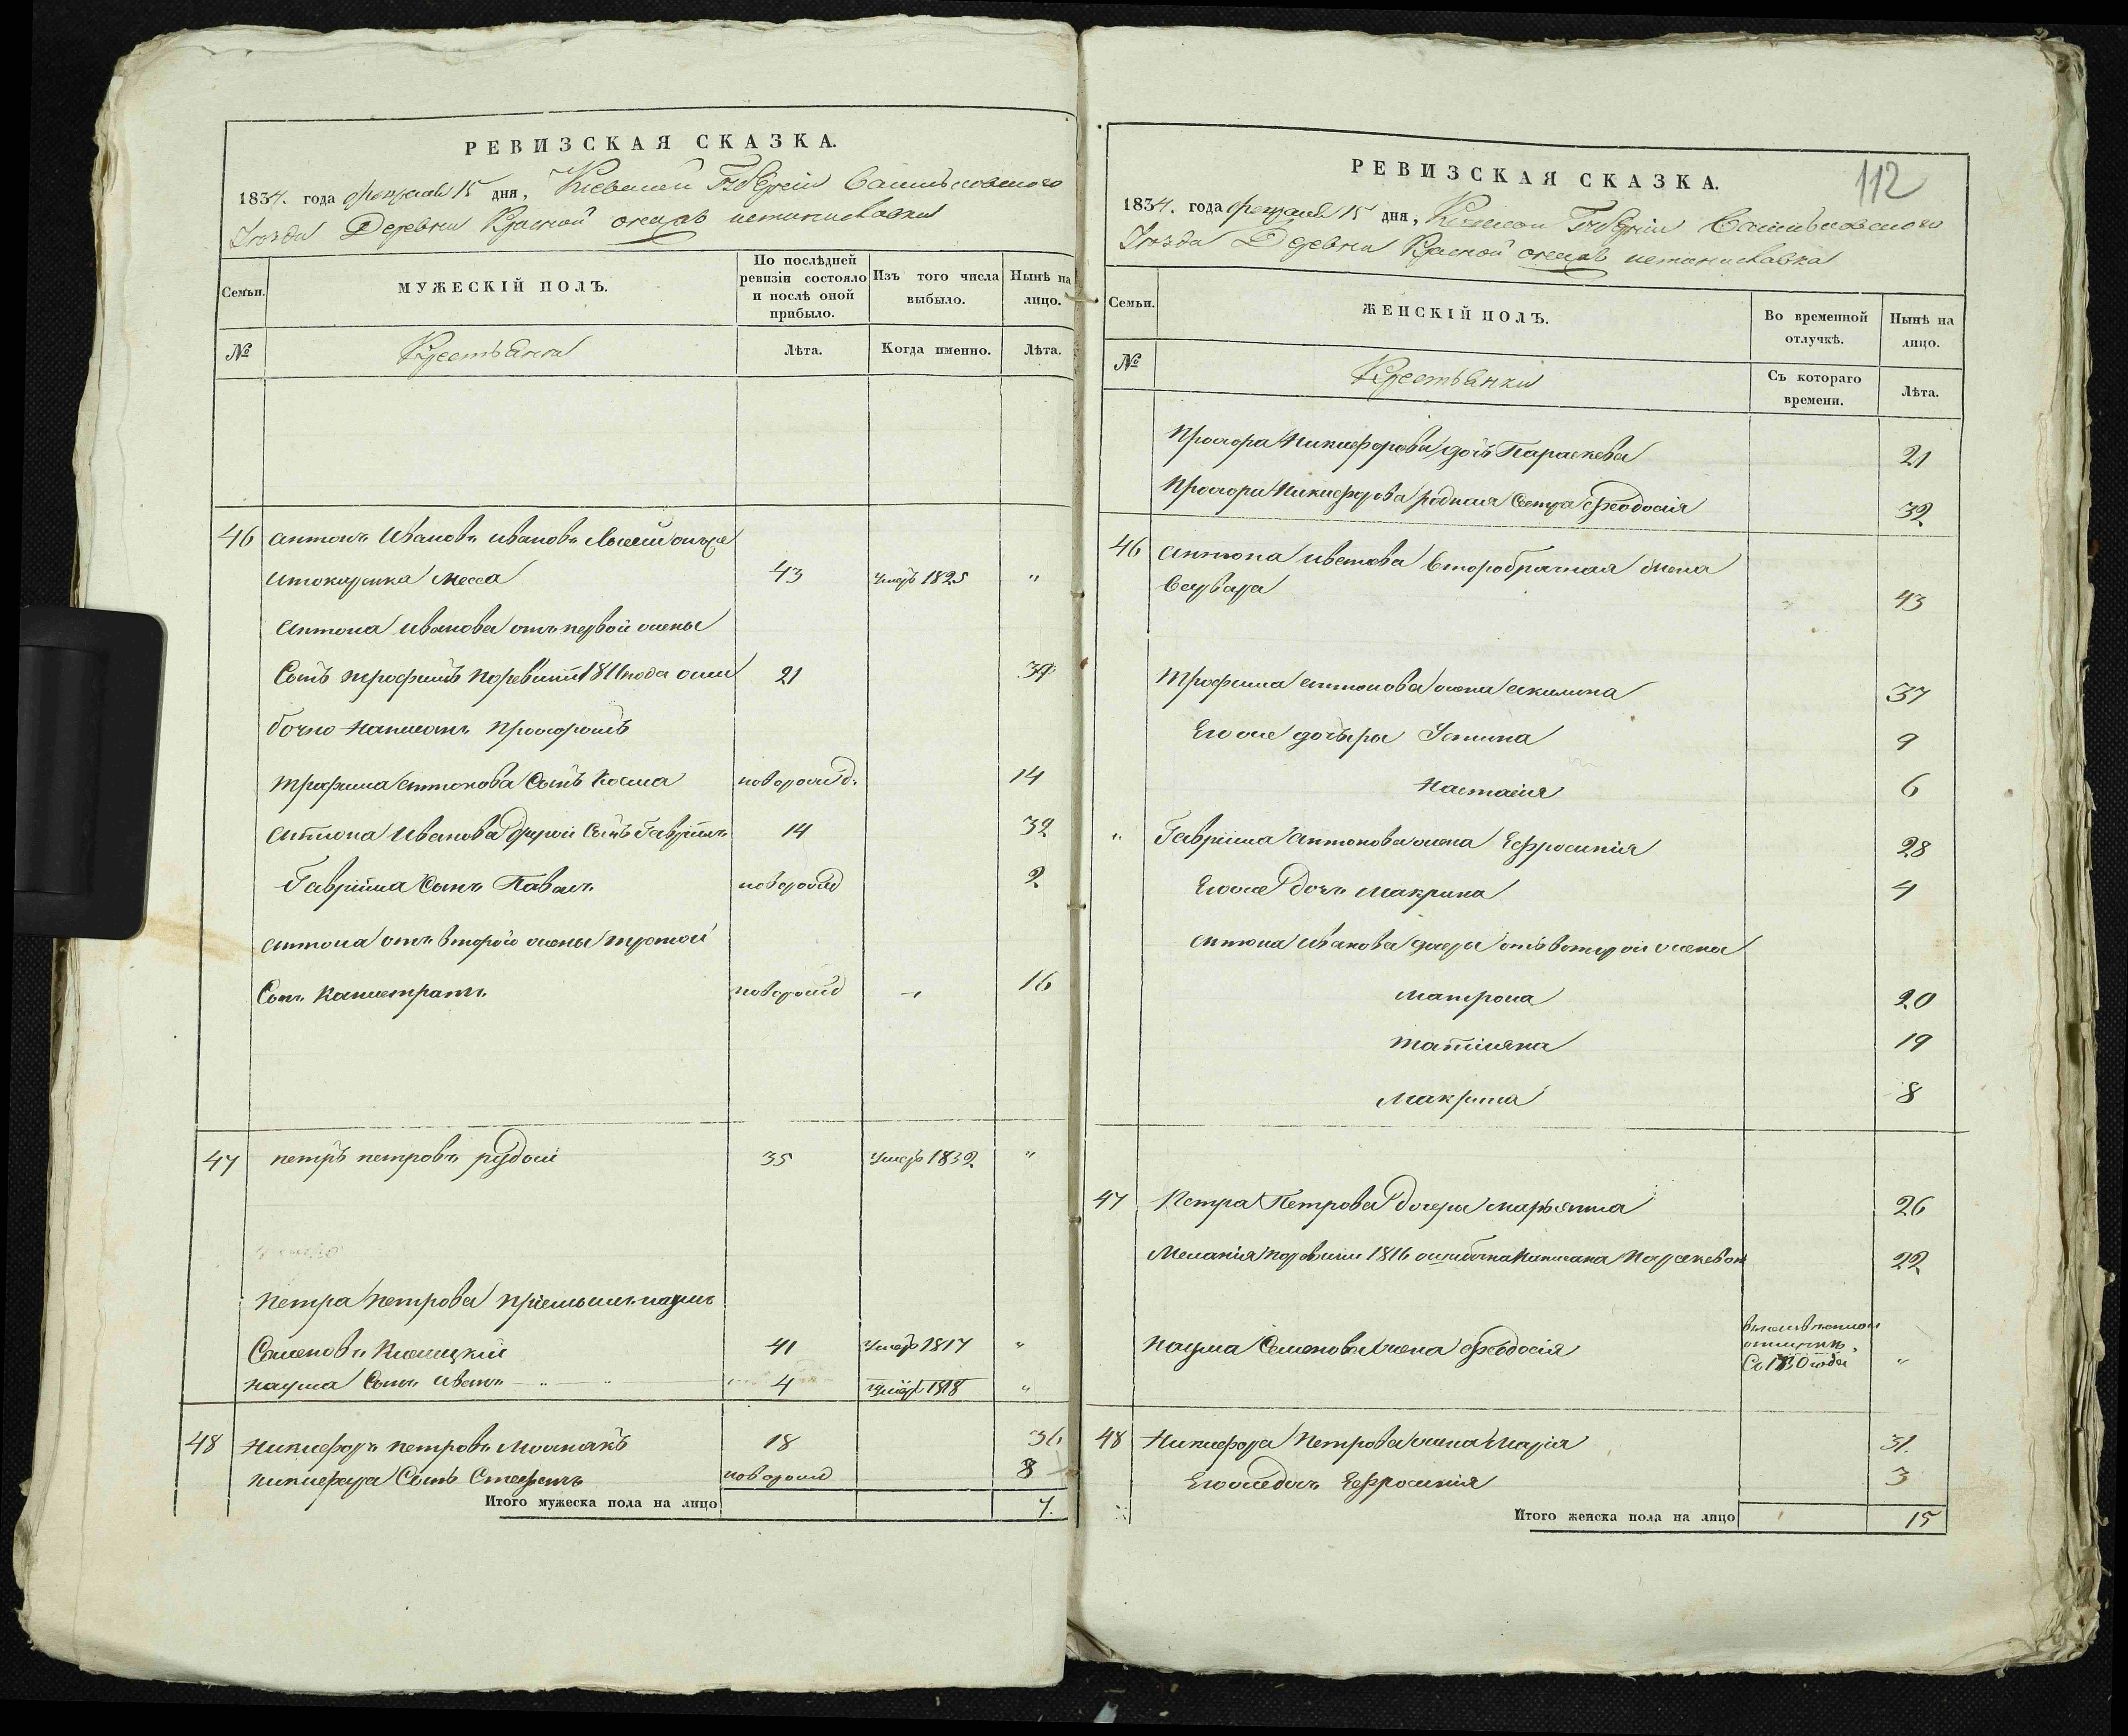 РЕВИЗСКАЯ СКАЗКА.
1834. года февраля 15 дня, Киевской Губерніи Васильковского
Уезда Деревни Красной
Семьи.
МУЖЕСКІЙ ПОЛЪ.
По послѣдней ревизіи состояло и послѣ оной прибыло.
Изъ того числа выбыло.
Нынѣ на лицо.
№
Крестьяни
Лѣта.
Когда именно.
Лѣта.
46 антонъ Ивановъ ивановъ
43 умеръ 1825 "
антона иванова отъ первой жены
Сынъ трофимъ поревизіи 1816 года оши 21
бочно написанъ прохоромъ
трофима антонова Сынъ Косма новорожд. 14
антона Иванова другой Сынъ Гавріилъ 14 32
Гавріила Сынъ Павелъ новорожд 2
антона отъ второй жены третой
Сынъ Калистратъ новорожд 16
47 петръ петровъ рудой 35 умеръ 1832 "
Петра петрова пріемышъ наумъ
Семеновъ 41 умеръ 1817 "
наума Сынъ Иванъ 4 умеръ 1818 "
48 Никифоръ петровъ 18 36
никифора Сынъ Стефанъ новорожд 8
Итого мужеска пола на лицо 7.
РЕВИЗСКАЯ СКАЗКА.
112
1834. года февраля 15 дня, Киевской Губерніи Васильковского
Уезда Деревни Красной
Семьи.
ЖЕНСКІЙ ПОЛЪ.
Во временной отлучкѣ.
Нынѣ на лицо.
№
Крестьянки
Съ котораго времени.
Лѣта.
Прохора Никифорова дочь Параскева 21
Прохора Никифорова родная Сестра феодосія 32
46 антона иванова второбрачная жена
варвара 43
трофима антонова жена акилина 37
Его же дочьры Устина 9
Настасия 6
" Гавріила антонова жена Ефросинія 28
Егоже дочь макрина 4
антона иванова дочеры отъ вторрой жены
матрона 20
татіяна 19
макрина 8
47 Петра Петрова дочеры марьянна 26
Меланія поревизіи 1816 ошибочна написана Параскевою 22
Наума Семенова жена феодосія
Со 1830 года "
48 Никифора Петрова жена Марія 31.
Егоже дочь Ефросинія 3
Итого женска пола на лицо 15